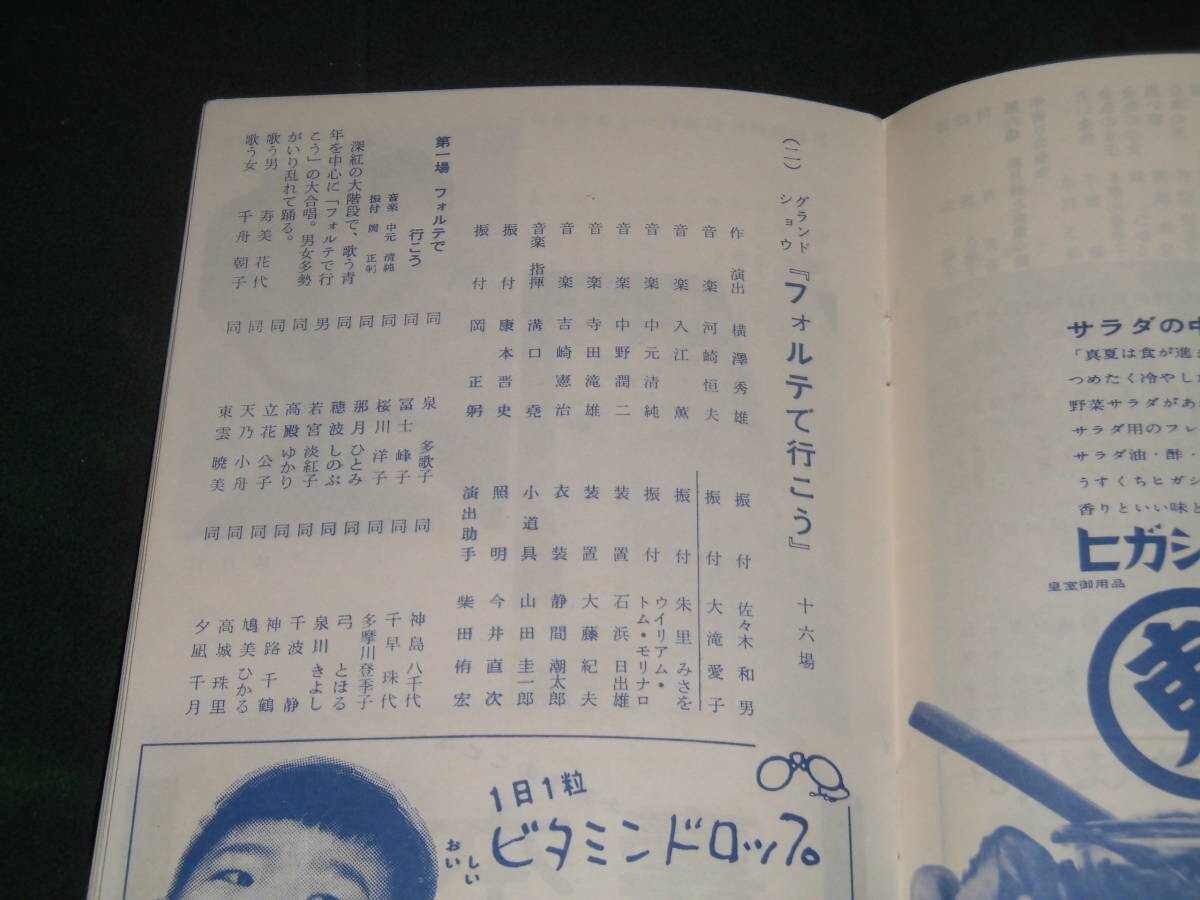 (二) グランド ショウ 『フォルテで行こう』 十六場
作 演出 横澤秀雄
音楽 河崎恒夫
音楽 入江薫
音楽 中元清純
音楽 中野潤二
音楽 寺田滝雄
音楽 吉崎憲治
音楽指揮 溝口堯
振付 康本晋史
振付 岡正躬
振付 佐々木和男
振付 大滝愛子
振付 朱里みさを
振付 ウイリアム・トム・モリナロ
装置 石浜日出雄
装置 大藤紀夫
衣装 静間潮太郎
小道具 山田圭一郎
照明 今井直次
演出助手 柴田侑宏
第一場 フォルテで
行こう
音楽 中元 清純
振付 岡 正躬
深紅の大階段で、歌う青
年を中心に「フォルテで行
こう」の大合唱。男女多勢
がいり乱れて踊る。
歌う男 寿美花代
歌う女 千舟朝子
同 泉多歌子
同 冨士峰子
同 桜川洋子
同 那月ひとみ
男 穂波しのぶ
同 若宮淡紅子
同 高殿ゆかり
同 立花公子
同 天乃小舟
同 東雲暁美
同 神島八千代
同 千早珠代
同 多摩川登季子
同 弓とほる
同 泉川きよし
同 千波静
同 神路千鶴
同 鳩美ひかる
同 高城珠里
同 夕凪千月
1日1粒
おいしい
ビタミンドロップ
サラダの中
「真夏は食が進
つめたく冷やし
野菜サラダがあ
サラダ用のフレ
サラダ油・酢・
うすくちヒガシ
香りといい味と
ヒガシ
皇室御用品